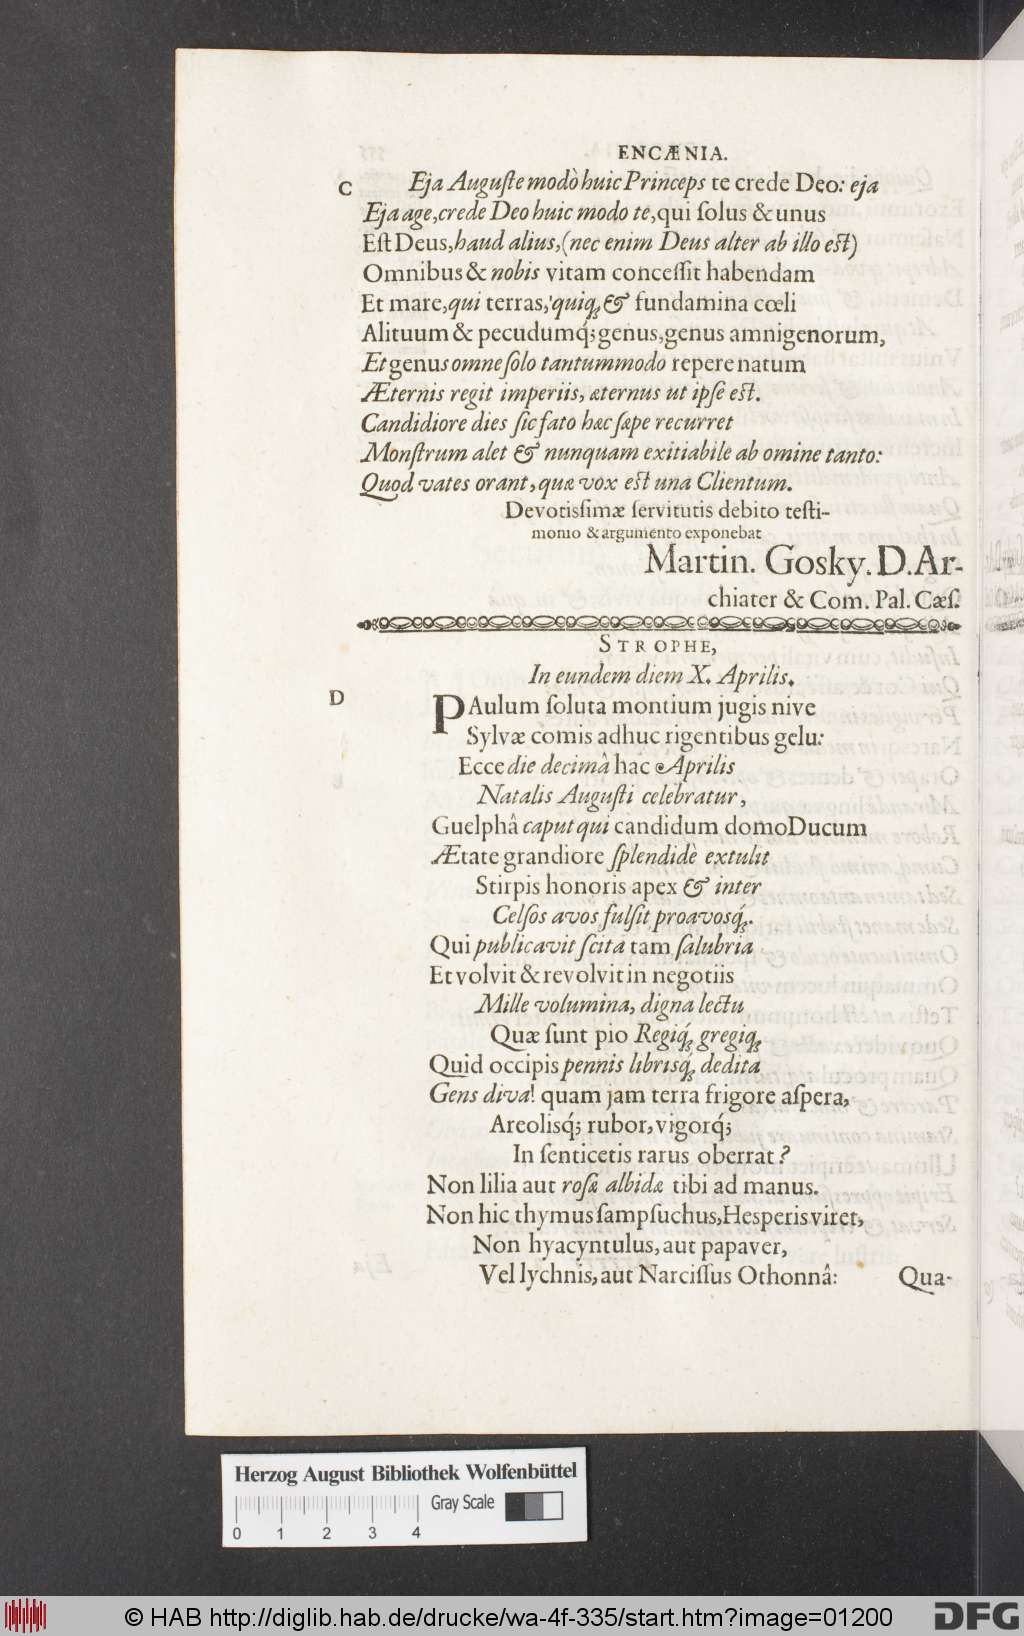 ENCÆNIA.
C Eja Auguſte modò huic Princeps te crede Deo: eja
Eja age, crede Deo huic modo te, qui ſolus & unus
Eſt Deus, haud alius, (nec enim Deus alter ab illo eſt)
Omnibus & nobis vitam conceſſit habendam
Et mare, qui terras, quiq́; & fundamina cœli
Alituum & pecudumq́; genus, genus amnigenorum,
Et genus omne ſolo tantummodo repere natum
Æternis regit imperiis, æternus ut ipſe eſt.
Candidiore dies ſic fato hæc ſæpe recurret
Monſtrum alet & nunquam exitiabile ab omine tanto:
Quod vates orant, quæ vox eſt una Clientum.
Devotisſimæ ſervitutis debito teſti-
monio & argumento exponebat
Martin. Gosky. D. Ar-
chiater & Com. Pal. Cæſ.
STROPHE,
In eundem diem X. Aprilis.
D PAulum ſoluta montium jugis nive
Sylvæ comis adhuc rigentibus gelu:
Ecce die decimâ hac Aprilis
Natalis Auguſti celebratur,
Guelphâ caput qui candidum domo Ducum
Ætate grandiore ſplendidè extulit
Stirpis honoris apex & inter
Celſos avos fulſit proavosq́;.
Qui publicavit ſcita tam ſalubria
Et volvit & revolvit in negotiis
Mille volumina, digna lectu
Quæ ſunt pio Regiq́; gregiq́;
Quid occipis pennis librisq́; dedita
Gens diva! quam jam terra frigore aſpera,
Areolisq́; rubor, vigorq́;
In ſenticetis rarus oberrat?
Non lilia aut roſæ albidæ tibi ad manus.
Non hic thymus ſampſuchus, Hesperis viret,
Non hyacyntulus, aut papaver,
Vel lychnis, aut Narciſſus Othonnâ:
Qua-
Herzog August Bibliothek Wolfenbüttel
Gray Scale
0 1 2 3 4
© HAB http://diglib.hab.de/drucke/wa-4f-335/start.htm?image=01200
DFG